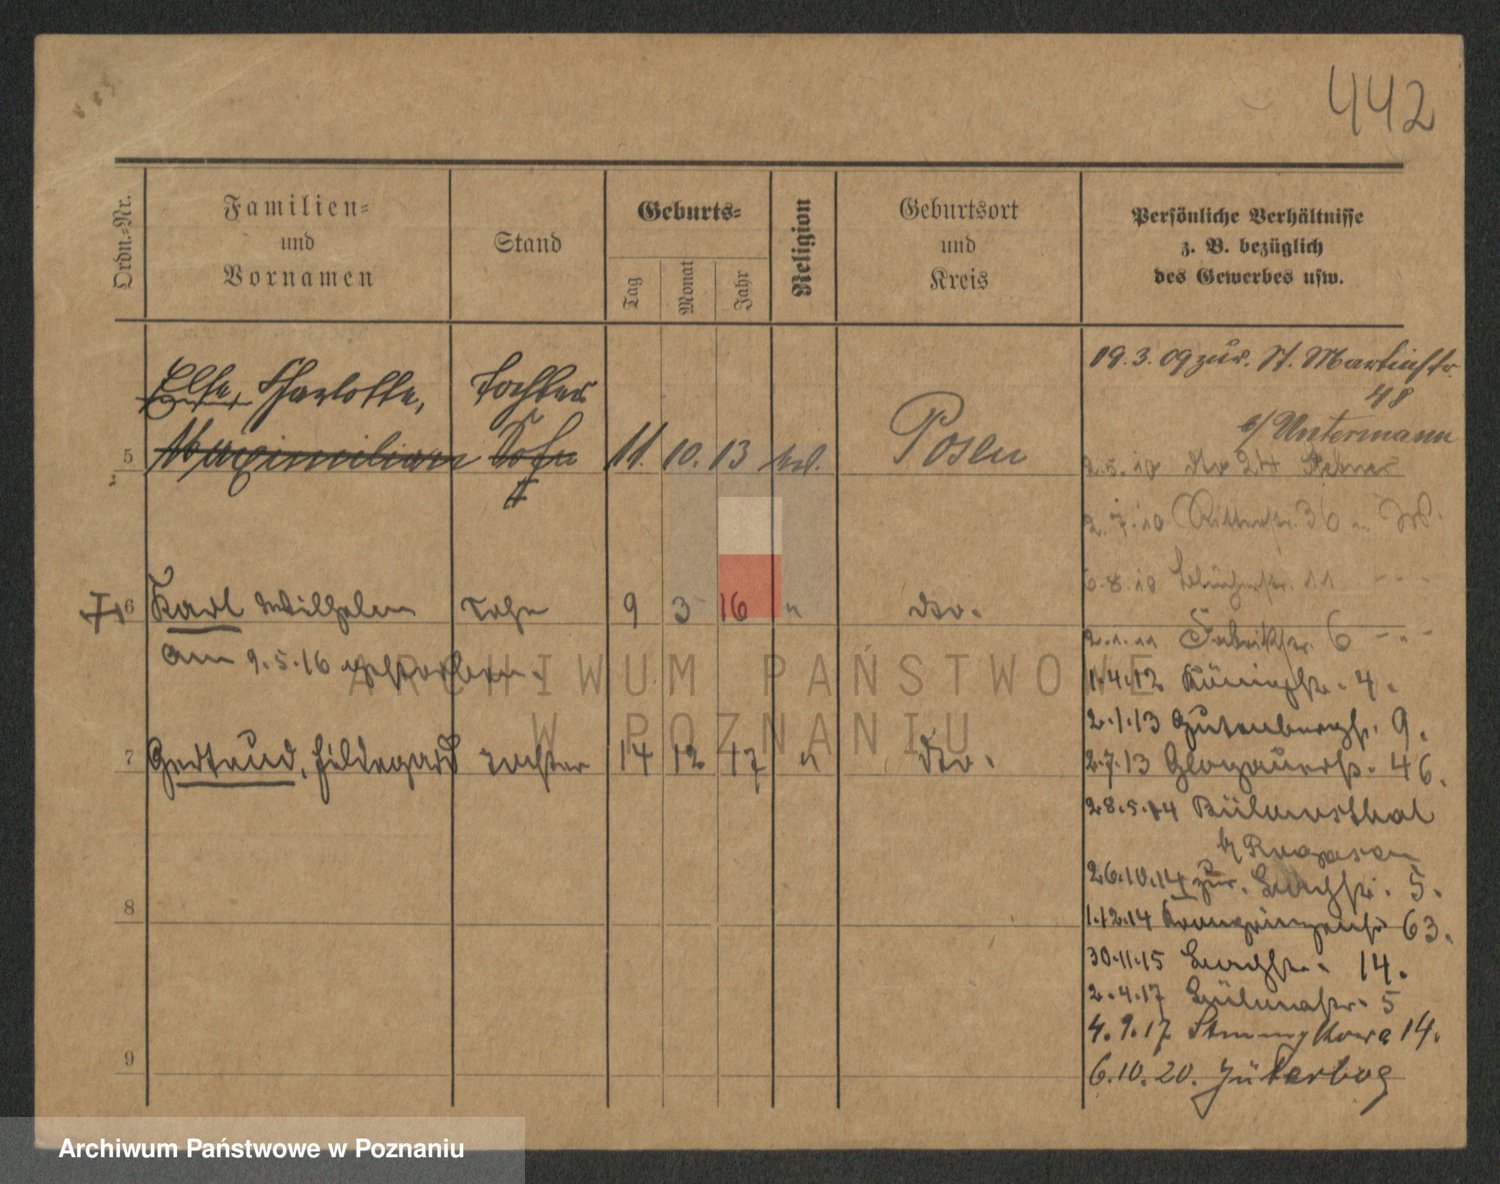 442
Ordn.-Nr.
Familien-
und
Vornamen
Stand
Geburts-
Tag
Monat
Jahr
Religion
Geburtsort
und
Kreis
Persönliche Verhältnisse
z. B. bezüglich
des Gewerbes usw.
Else, Charlotte, Tochter
5 Maximilian Sohn 11. 10. 13 Posen
6 Karl Wilhelm Sohn 9 3 16 " do.
am 9.5.16 gestorben.
7 Gertraud, Hildegard Tochter 14 12 17 " do.
8
9
19.3.09 zur. St. Martinstr.
48
b/ Untermann
2.5.10 24
2.7.10 Ritterstr. 36
6.8.10 11
2.1.11 Fabrikstr. 6
1.4.12 Königstr. 4.
2.1.13 Gutenbergstr. 9.
2.7.13 Glogauerstr. 46.
28.5.14
26.10.14 zur. 5.
1.12.14 Kronprinzenstr 63.
30.11.15 14.
2.4.17 5
4.9.17 14.
6.10.20. Jüterbog
ARCHIWUM PAŃSTWOWE
W POZNANIU
Archiwum Państwowe w Poznaniu